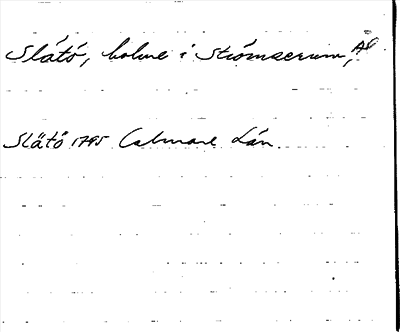 Slätö, holme i Strömserum, Ål
Slätö 1795 Calmare Län